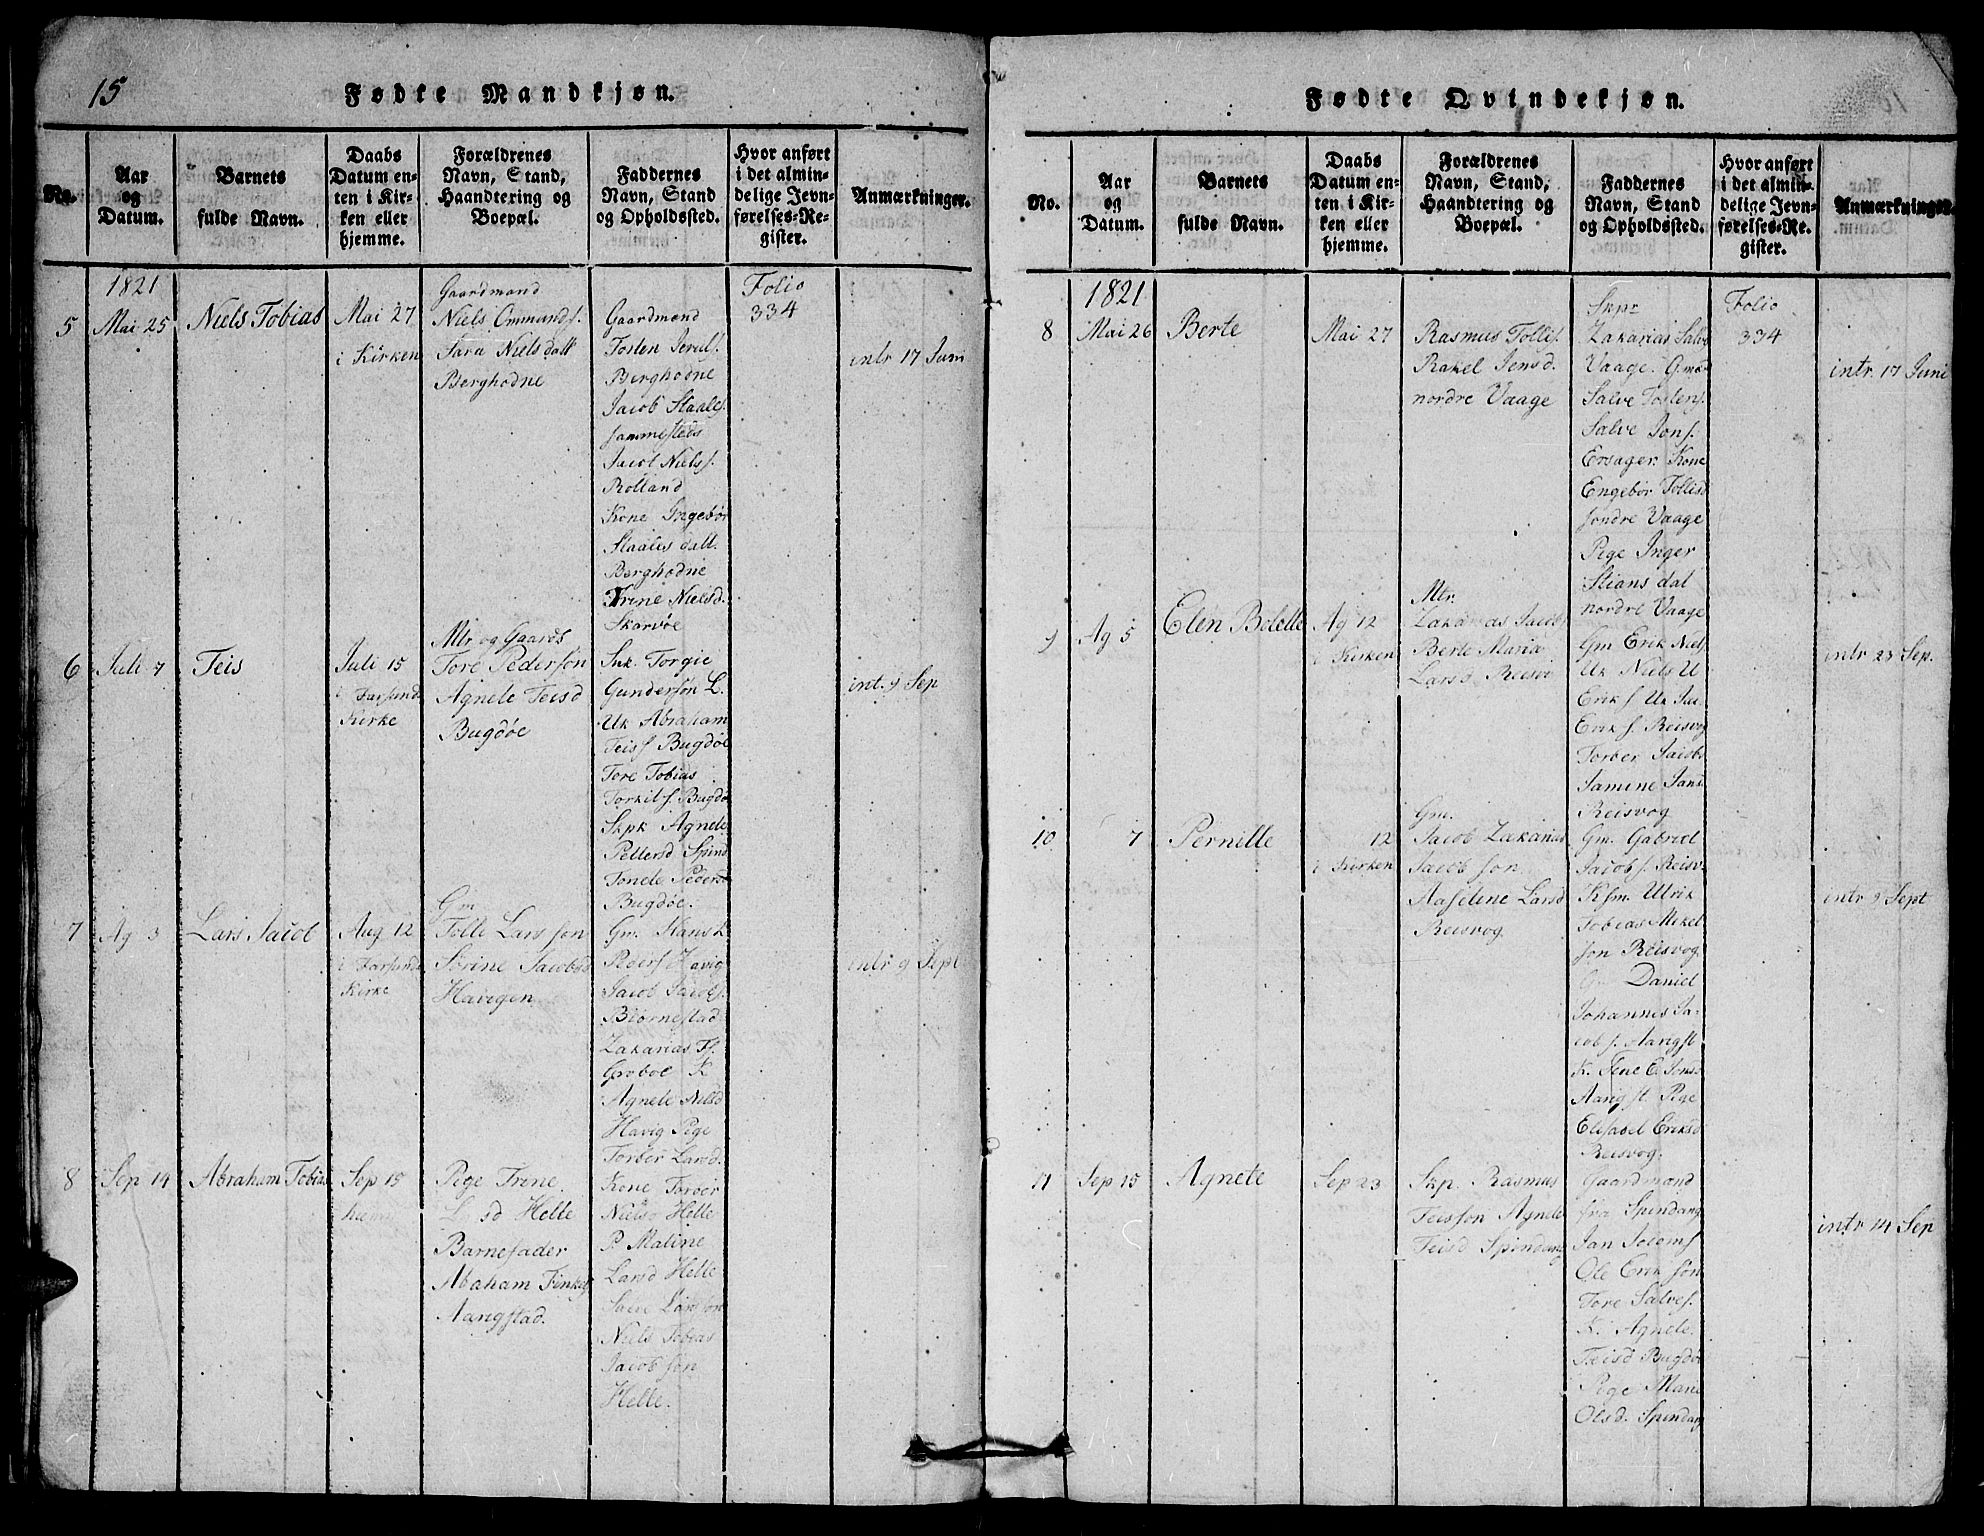 15
Fødte Mandkjøn.
No.
Aar
og
Datum.
Barnets
fulde Navn.
Daabs
Datum en-
ten i Kir-
ken eller
hjemme.
Forældrenes
Navn, Stand,
Haandtering og
Boepæl.
Faddernes
Navn, Stand
og Opholdssted.
Hvor anført
i det almin-
delige Jevn-
førelses-Re-
gister.
Anmærkninger.
1821
5
Mai 25
Niels Tobias
Mai 27
i Kirken
Gaardmand
Niels Ommunds.
Sara Nielsdatt
Berghodne
Gaardmand
Tosten Jeruls.
Berghodne
Jacob Staales.
sammesteds
Jacob Niels s.
Rolland
Kone Ingebør
Staales datt.
Berghodne
Trine Nielsd.
Skarvøe
Folio
334
intr 17 Juni
6
Juli 7
Teis
Juli 15
i Farsund
Kirke
Mtr og Gaards
Tore Pedersøn
Agnete Teisd
Bugdøe
Snk. Torgie
Gundersøn L.
Uk Abraham
Teis s Bugdøe
Tore Tobias
Torkils s. Bugdø
Skpk Agnete
Pettersd Spind
Tonete Pedersd
Bugdøe.
int. 9 Sep
7
Ag 3
Lars Jacob
Aug 12
i Farsund
Kirke
Gm
Tolle Lars søn
Sørine Jacobsd
Havigen
Gm. Hans L
Peders Havig
Jacob Jacobs.
Biørnestad
Zakarias T s.
Groboe K
Agnete Nilsd
Havig Pige
Torber Larsd.
intr 9 Sept
8
Sep 14
Abraham Tobias
Sep 15
hiem
Pige Trine
L sd Helle
Barnefader
Abaham Tenkels
Aangstad.
Kone Torber
Nielsd Helle
P. Maline
Larsd Helle
Salve Larssøn
Niels Tobias
Jacob søn
Helle.
Fødte Qvindekjøn.
No.
Aar
og
Datum.
Barnets
fulde Navn.
Daabs
Datum en-
ten i Kir-
ken eller
hjemme.
Forældrenes
Navn, Stand,
Haandtering og
Boepæl.
Faddernes
Navn, Stand
og Opholdssted.
Hvor anført
i det almin-
delige Jevn-
førelses-Re-
gister.
Anmærkninger.
1821
8
Mai 26
Berte
Mai 27
Rasmus Tollis.
Rakel Jensd.
nordre Vaage
Skpr
Zakarias Salve
Vaage. Gmd
Salve Tostens.
Salve Jons.
Ersager. Kone
Engebør Tollisd
søndre Vaage
Pige Inger
Stians dat
nordre Vaage
Folio
334
intr. 17 Juni
9
Ag 5
Elen Bolette
Ag 12
i Kirken
Mtr.
Zakarias Jacobs
Berte Maria
Larsd Reisv
Gm Erik Niels
Uk Niels U
Erik s Uk Jac
Erik s. Reisvog
Torber Jacobs
Jamine Jansd
Reisvog
intr 23 Sep.
10
7
Pernille
12
i Kirken
Gm.
Jacob Zakarias
Jacob søn
Aaselene Larsd
Reisvog
Gm. Gabriel
Jacob s. Reisv.
Ksm. Ulrik
Tobias Mikel
søn Reisvog
Gm Daniel
Johannes Ja-
cob s. Aangst
K. Tene E Jonsd
Aangst. Pige
Elisabel Eriksd
Reisvog.
intr 9 Sept
11
Sep 15
Agnete
Sep 23
Skp. Rasmus
Teissøn Agnete
Teisd Spindang
Gaardmænd
fra Spindang
Jan Joeoms
Ole Erik søn
Tore Salves.
K. Agnete
Teisd Bugdøe
Pige Mari
Olsd. Spindang
intr 14 Sep